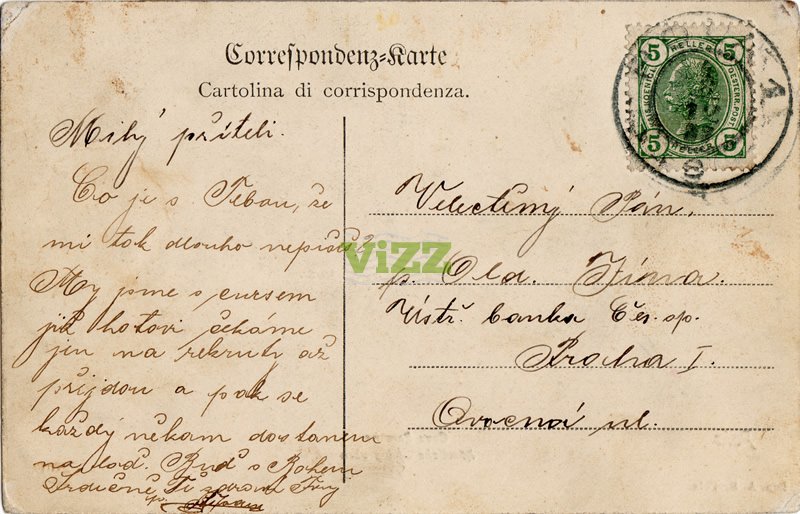 Correspondenz-Karte
Cartolina di corrispondenza.
5 HELLER 5
5 HELLER 5
Milý příteli.
Co je s Tebou, že
mi tok dlouho nepíšeš?
My jsme s cursem
již hotovi čekáme
jen na rekruty až
přijdou a pak se
každý někam dostanem
na loď. Buď s Bohem
Srdečně Tě zdraví
ViZZ
Velectěný Pán.
p. Old. Jíma.
Ústř. banka Čes. sp.
Praha I.
Ovocná ul.